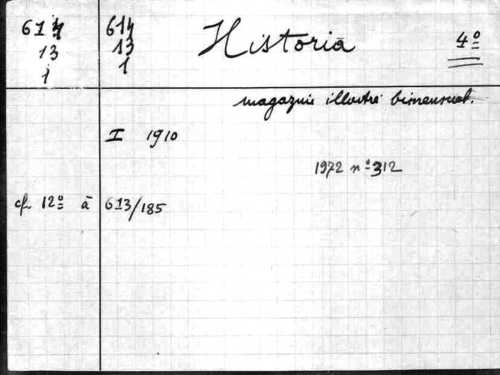 614 614 Historia 4º
13 13
1 1
magazine illustré bimensuel.
I 1910
1972 nº 312
cf. 12º à 613/185